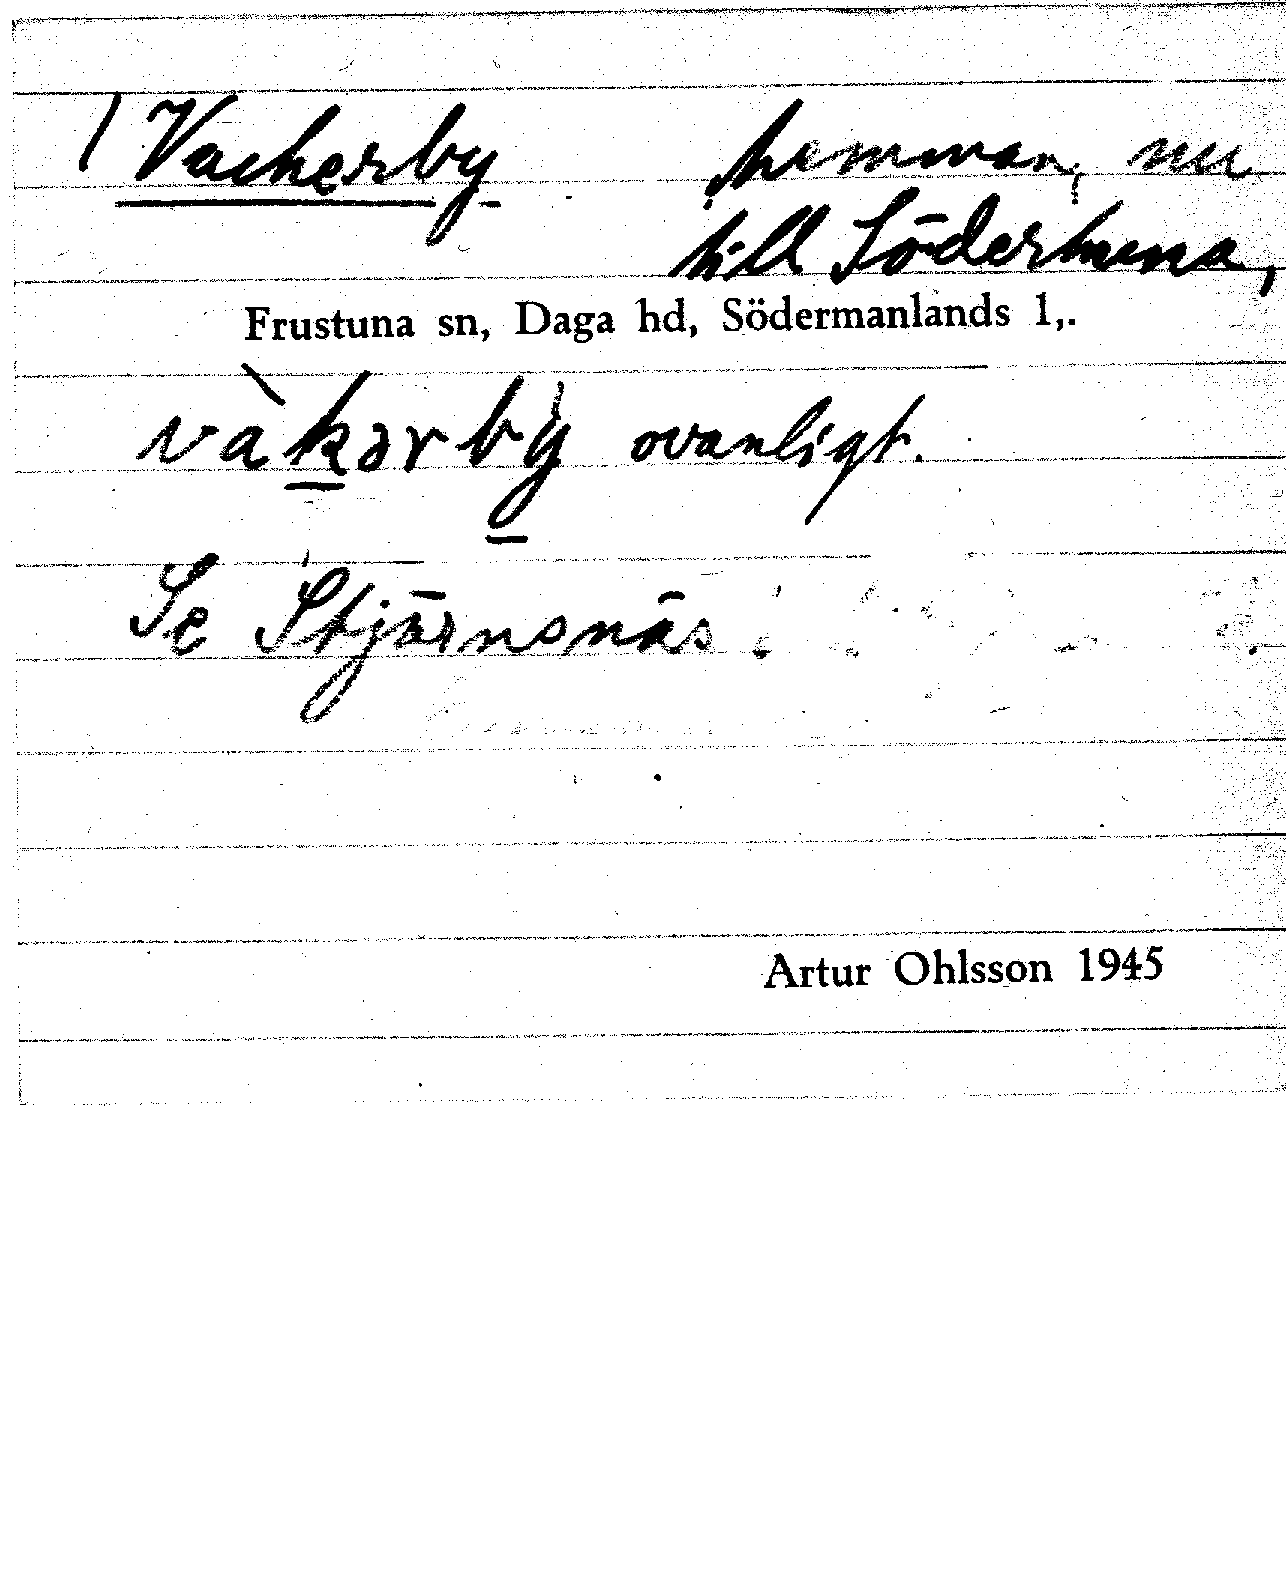 / Vackerby hemman, nu
till Södertuna,
Frustuna sn, Daga hd, Södermanlands l,.
vàkərby ovanligt.
Se Stjärnsnäs
Artur Ohlsson 1945